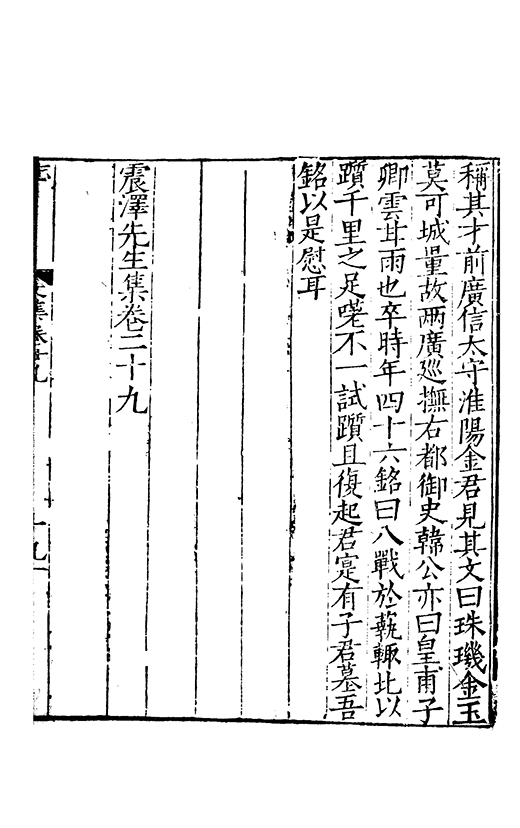 稱其才前廣信太守淮陽金君見其文曰珠璣金玉
莫可城量故兩廣廵撫右都御史韓公亦曰皇甫子
卿雲甘雨也卒時年四十六銘曰八戰於藝輙北以
躓千里之足嗟不一試躓且復起君寔有子君墓吾
銘以是慰耳
震澤先生集卷二十九
文集卷廿九